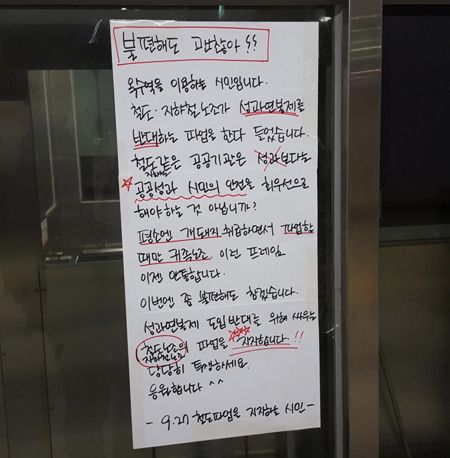 불편해도 괜찮아!!
옥수역을 이용하는 시민입니다.
철도·지하철노조가 성과연봉제를
반대하는 파업을 한다 들었습니다.
철도같은 공공기관은 성과보다는
지하철
공공성과 시민의 안전을 최우선으로
해야하는 것 아닙니까?
평소엔 개돼지 취급하면서 파업할
때만 귀족노조 이런 프레임
이젠 안통합니다.
이번엔 좀 불편해도 참겠습니다.
성과연봉제 도입반대를 위해 싸우는
철도노조의 파업을 지지합니다!!
지하철노조
당당히 투쟁하세요.
응원합니다 ^^
- 9.27 철도파업을 지지하는 시민 -